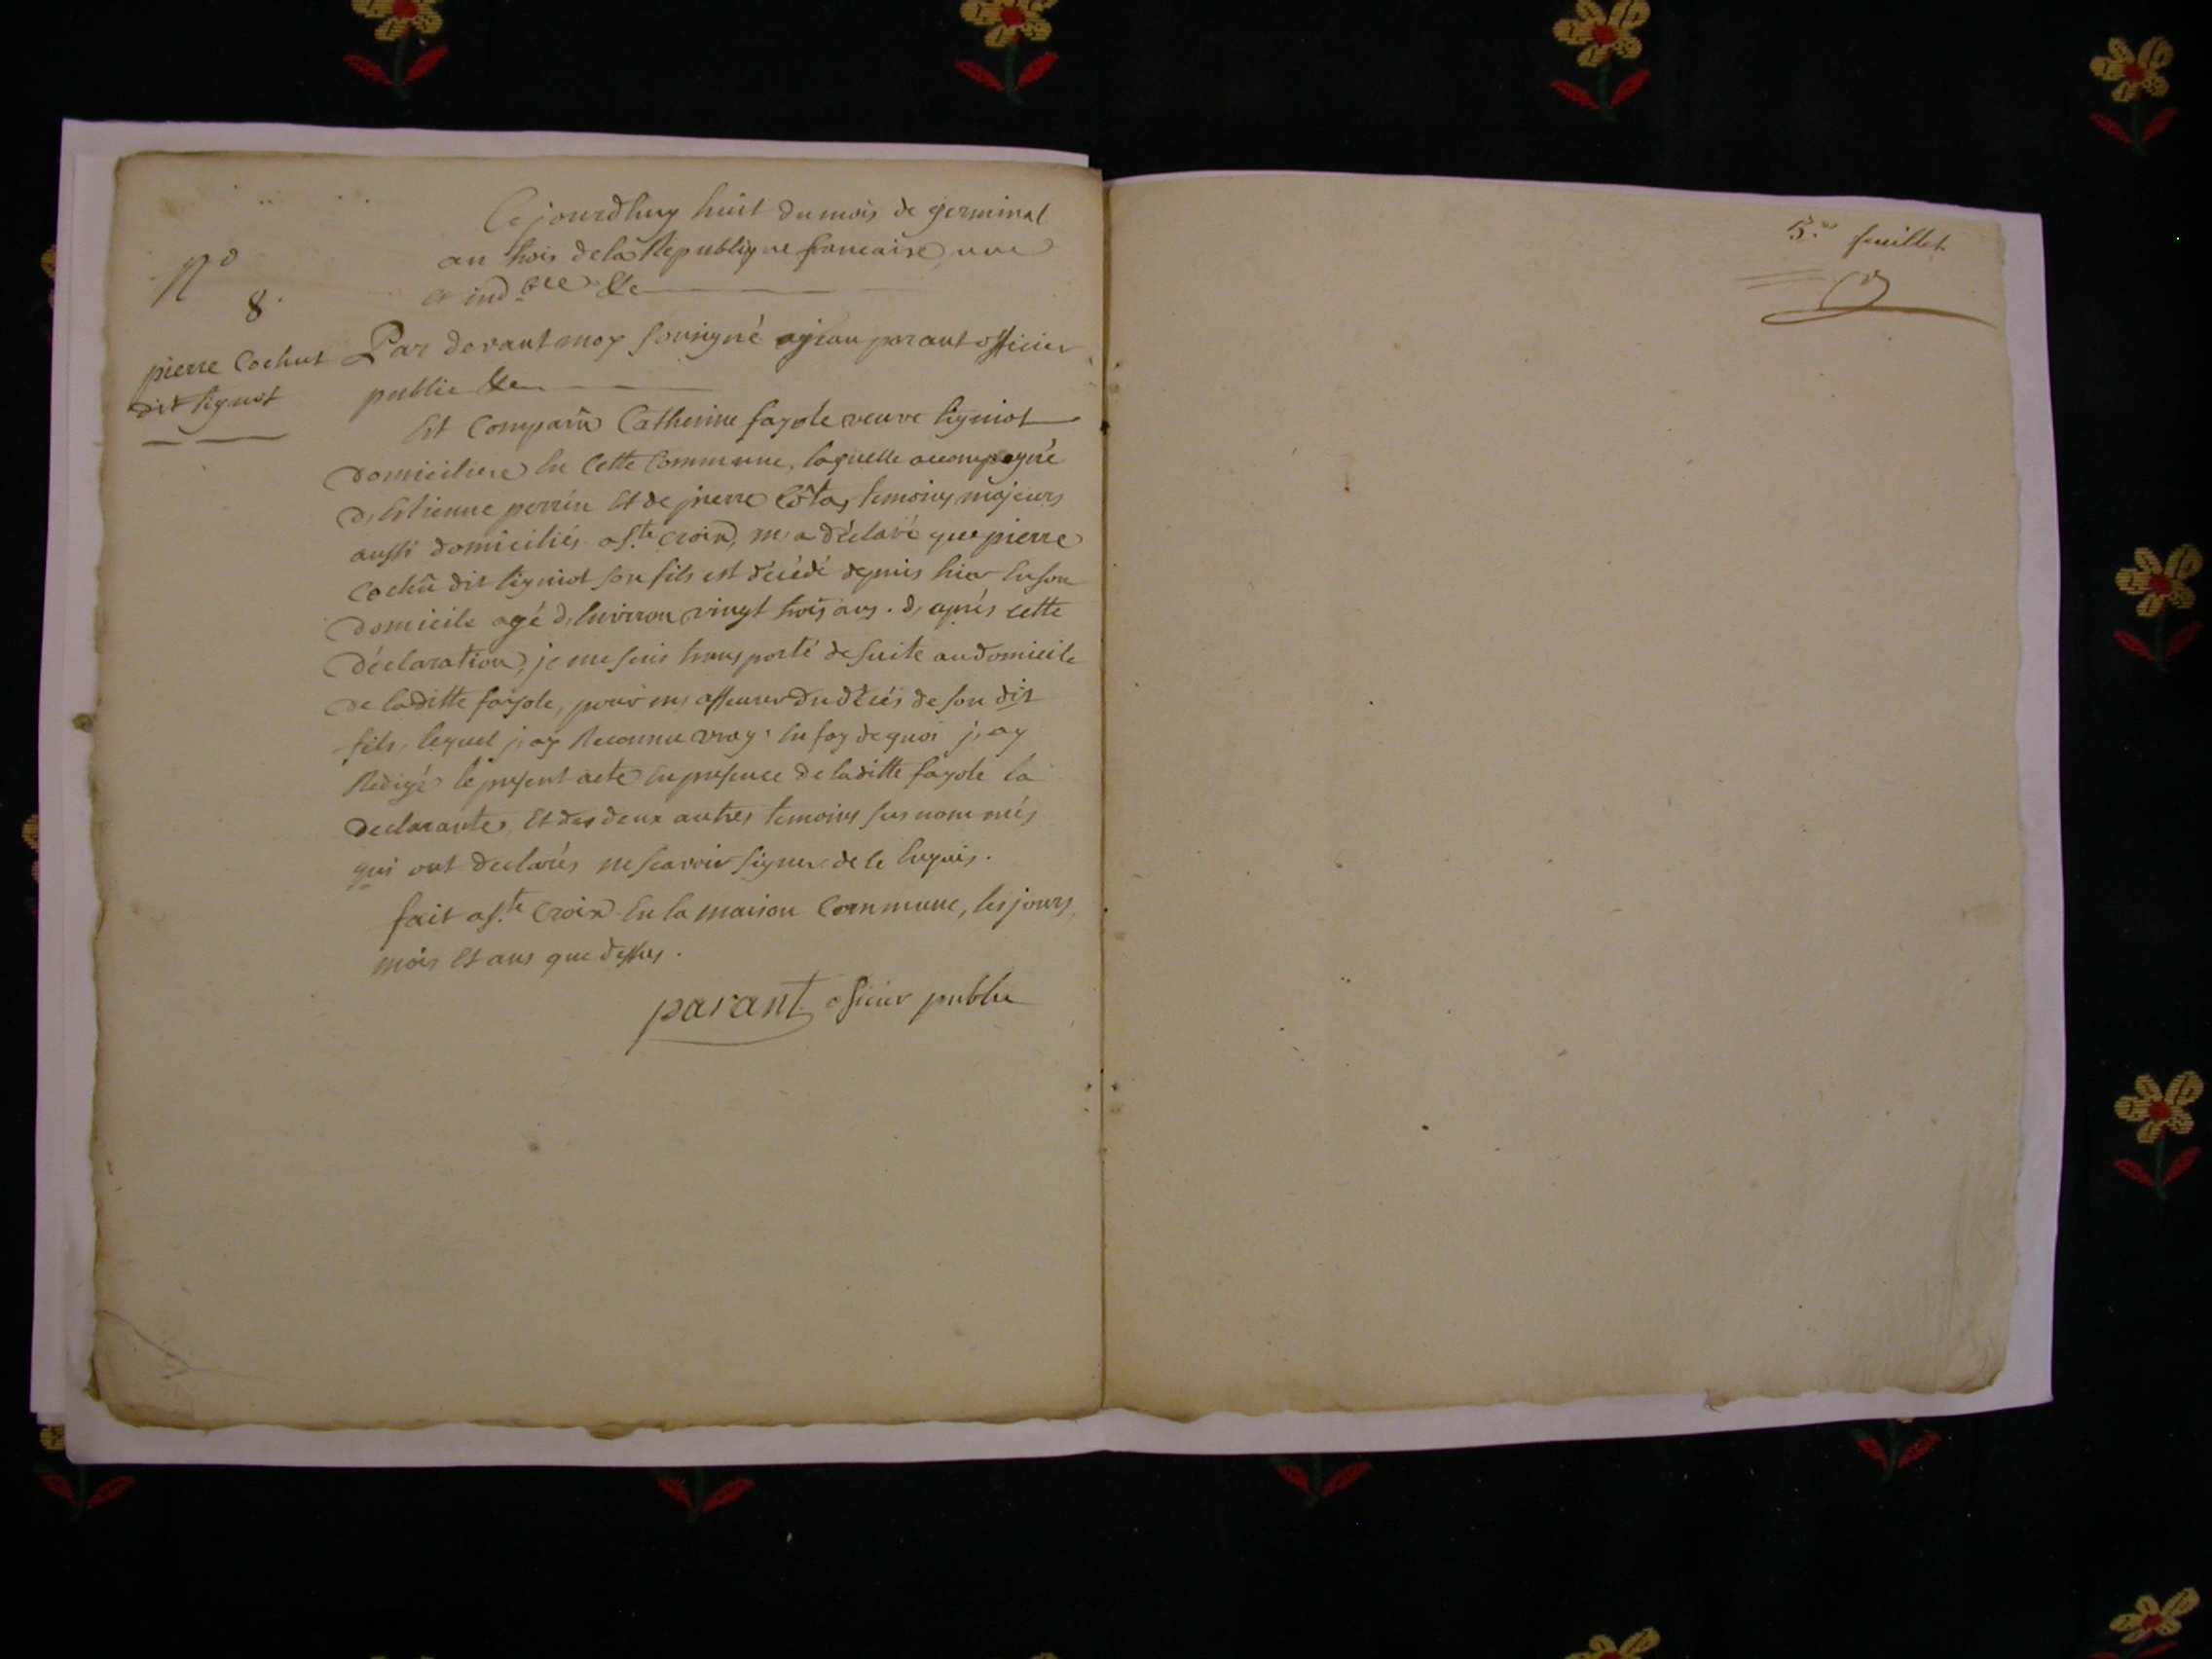 Cejourdhuy huit du mois de germinal
an trois de la Republique francaise, une
et ind.ble &c
N° 8.
pierre Cochut
dit ligniot
Par devant moy sousigné parant officier
public &c
Est Comparü Catherine fayole veuve ligniot
domiciliere En Cette Commune, laquelle accompagné
d, Estienne perrin Et de pierre Côta, temoins majeurs
aussi domiciliés a S.te Croix, m, a déclaré que pierre
Cochü dit ligniot son fils est décédé depuis hier En son
domicile agé d, Environ vingt trois ans. d, aprés cette
déclaration, je me suis transporté de suite au domicile
de laditte fayole, pour m, asseurer du décés de son dit
fils, lequel j, ay Reconnu vray. En foy de quoi j, ay
Redigé le present acte En presence de laditte fayole la
declarante, Et des deux autres temoins sus nommés
qui ont declarés ne scavoir signer de ce Enquis.
fait a S.te Croix En la maison Commune, les jours,
mois Et ans que dessus.
parant officier public
5.e feuillet